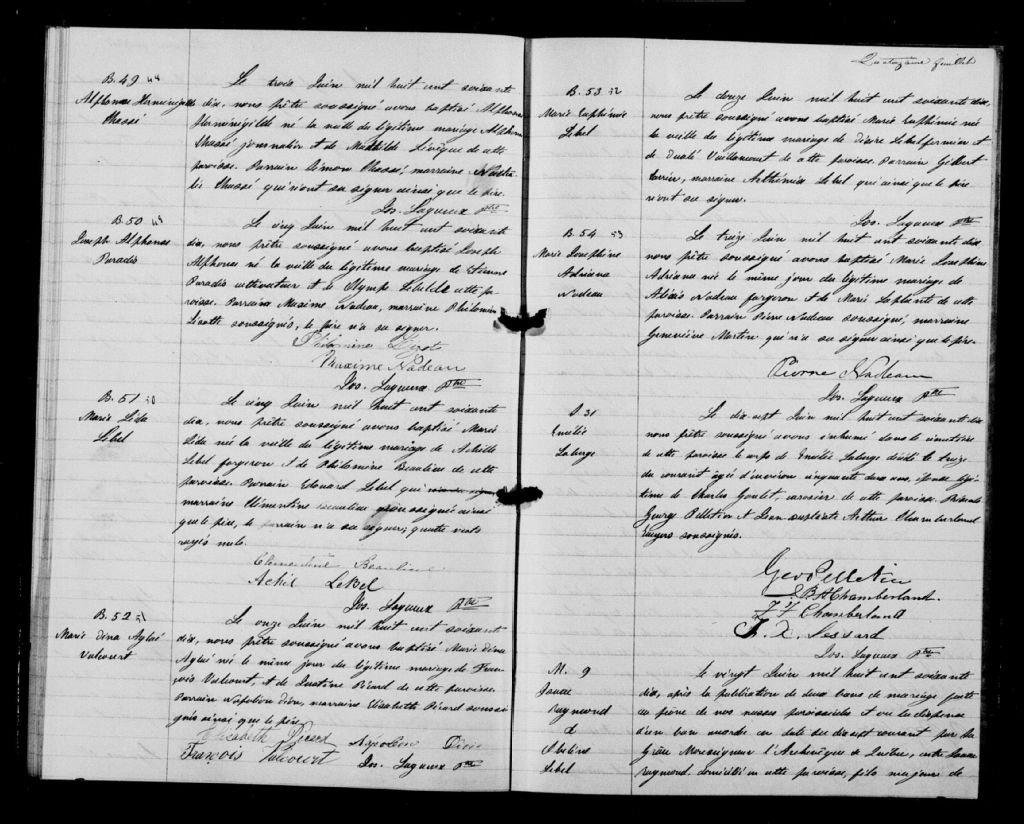 B. 49 44
Alphonse Herménégilde
Chassé
Le trois Juin mil huit cent soixante
dix, nous prêtre soussigné avons baptisé Alphonse
Herménégilde né la veille du légitime mariage Alphonse
Chassé journalier et de Mathilde Lévêque de cette
paroisse. Parrain Simon Chassé, marraine
Chassé qui n'ont su signer ainsi que le père.
Jos. Lagueux Ptre
B. 50
Joseph Alphonse
Paradis
Le cinq Juin mil huit cent soixante
dix, nous prêtre soussigné avons baptisé Joseph
Alphonse né la veille du légitime mariage de Etienne
Paradis cultivateur et de Olympe Lebel de cette pa-
roisse. Parrain Maxime Nadeau, marraine Philomène
soussignés, le père n'a su signer.
Philomène
Maxime Nadeau
Jos. Lagueux Ptre
B. 51 50
Marie Lida
Lebel
Le cinq Juin mil huit cent soixante
dix, nous prêtre soussigné avons baptisé Marie
Lida née la veille du légitime mariage de Achille
Lebel forgeron et de Philomène Beaulieu de cette
paroisse. Parrain Edouard Lebel qui
marraine Clémentine Beaulieu soussignée ainsi
que le père, le parrain n'a su signer; quatre mots
rayés nuls.
Clementine Beaulieu
Achil LeBel
Jos. Lagueux Ptre
B. 52 51
Marie Dina Aglaé
Valcourt
Le onze Juin mil huit cent soixante
dix, nous prêtre soussigné avons baptisé Marie Dina
Aglaé née le même jour du légitime mariage de Fran-
çois Valcourt, et de Justine Picard de cette paroisse.
Parrain Napoléon Dion, marraine Elisabeth Picard soussi-
gnés ainsi que le père.
Elisabeth Picard
François Valcourt Napoléon Dion
Jos. Lagueux Ptre
Quatorzième feuillet
B. 53 52
Marie Euphémie
Lebel
Le douze Juin mil huit cent soixante dix,
nous prêtre soussigné avons baptisé Marie Euphémie née
la veille du légitime mariage de Désiré Lebel fermier et
de Vaillancourt de cette paroisse. Parrain Gilbert
marraine Arthémise Lebel qui ainsi que le père
n'ont su signer.
Jos. Lagueux Ptre
B. 54 53
Marie Josephine
Adriana
Nadeau
Le treize Juin mil huit cent soixante dix
nous prêtre soussigné avons baptisé Marie Josephine
Adriana née le même jour du légitime mariage de
Alexis Nadeau forgeron et de Marie Laplante de cette
paroisse. Parrain Pierre Nadeau soussigné, marraine
Geneviève Martin qui n'a su signer ainsi que le père.
Pierre Nadeau
Jos. Lagueux Ptre
S. 31
Emélie
Laberge
Le dix sept Juin mil huit cent soixante dix
nous prêtre soussigné avons inhumé dans le cimetière
de cette paroisse le corps de Emélie Laberge décédée le treize
du courant âgée d'environ cinquante deux ans, épouse légi-
time de Charles Goulet, de cette paroisse. Présents
George Pelletier et Jean Arthur Chamberland
soussignés.
Geo Pelletier
J B A Chamberland.
F. F. Chamberland
F. X. Lessard
Jos. Lagueux Ptre
M. 9
Isaac
Raymond
&
Lebel
Le vingt Juin mil huit cent soixante
dix, après la publication de deux bans de mariage faite
au prône de nos messes paroissiales et vu la dispense
d'un ban accordée en date du dix sept courant par Sa
Grâce Monseigneur l'Archevêque de Québec, entre Isaac
Raymond domicilié en cette paroisse, fils majeur de